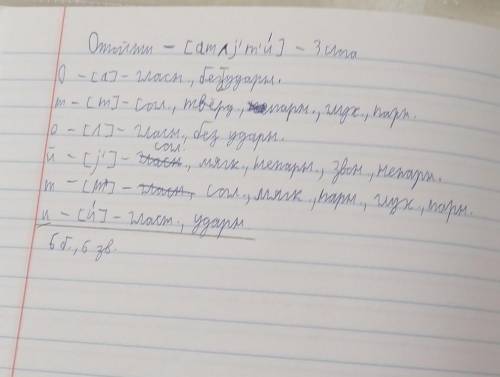 Отойти - [атʌj'т'и́] - 3 слога
О - [а] - гласн., без ударн.
т - [т] - сол., тверд., парн., глух., парн.
о - [ʌ] - гласн., без ударн.
й - [j'] - сол., мягк., непарн., звон., непарн.
т - [т'] - гласн., сол., мягк., парн., глух., парн.
и - [и́] - гласн., ударн
6 б., 6 зв.